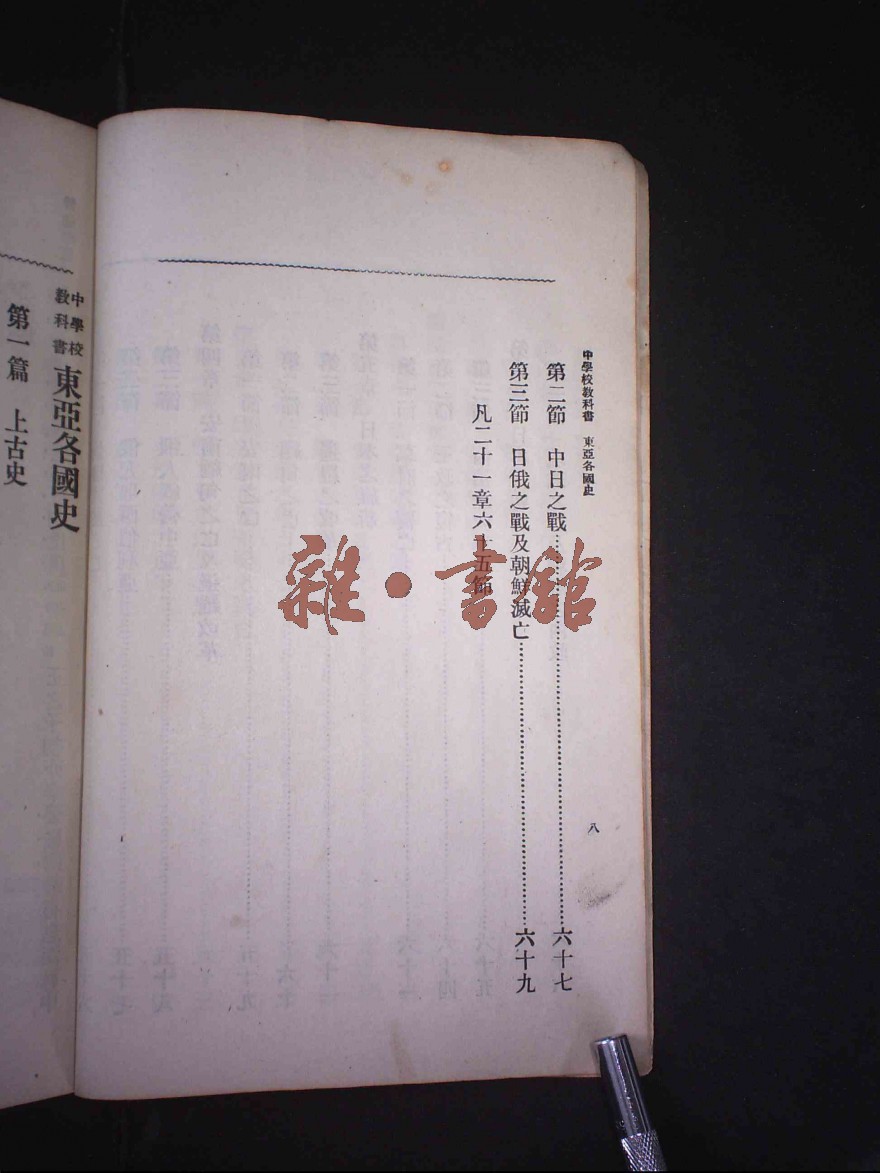 中學校教科書 東亞各國史
第二節 中日之戰……六十七
第三節 日俄之戰及朝鮮滅亡……六十九
凡二十一章六十五節
八
中學校教科書 東亞各國史
第一篇 上古史
雜·書館